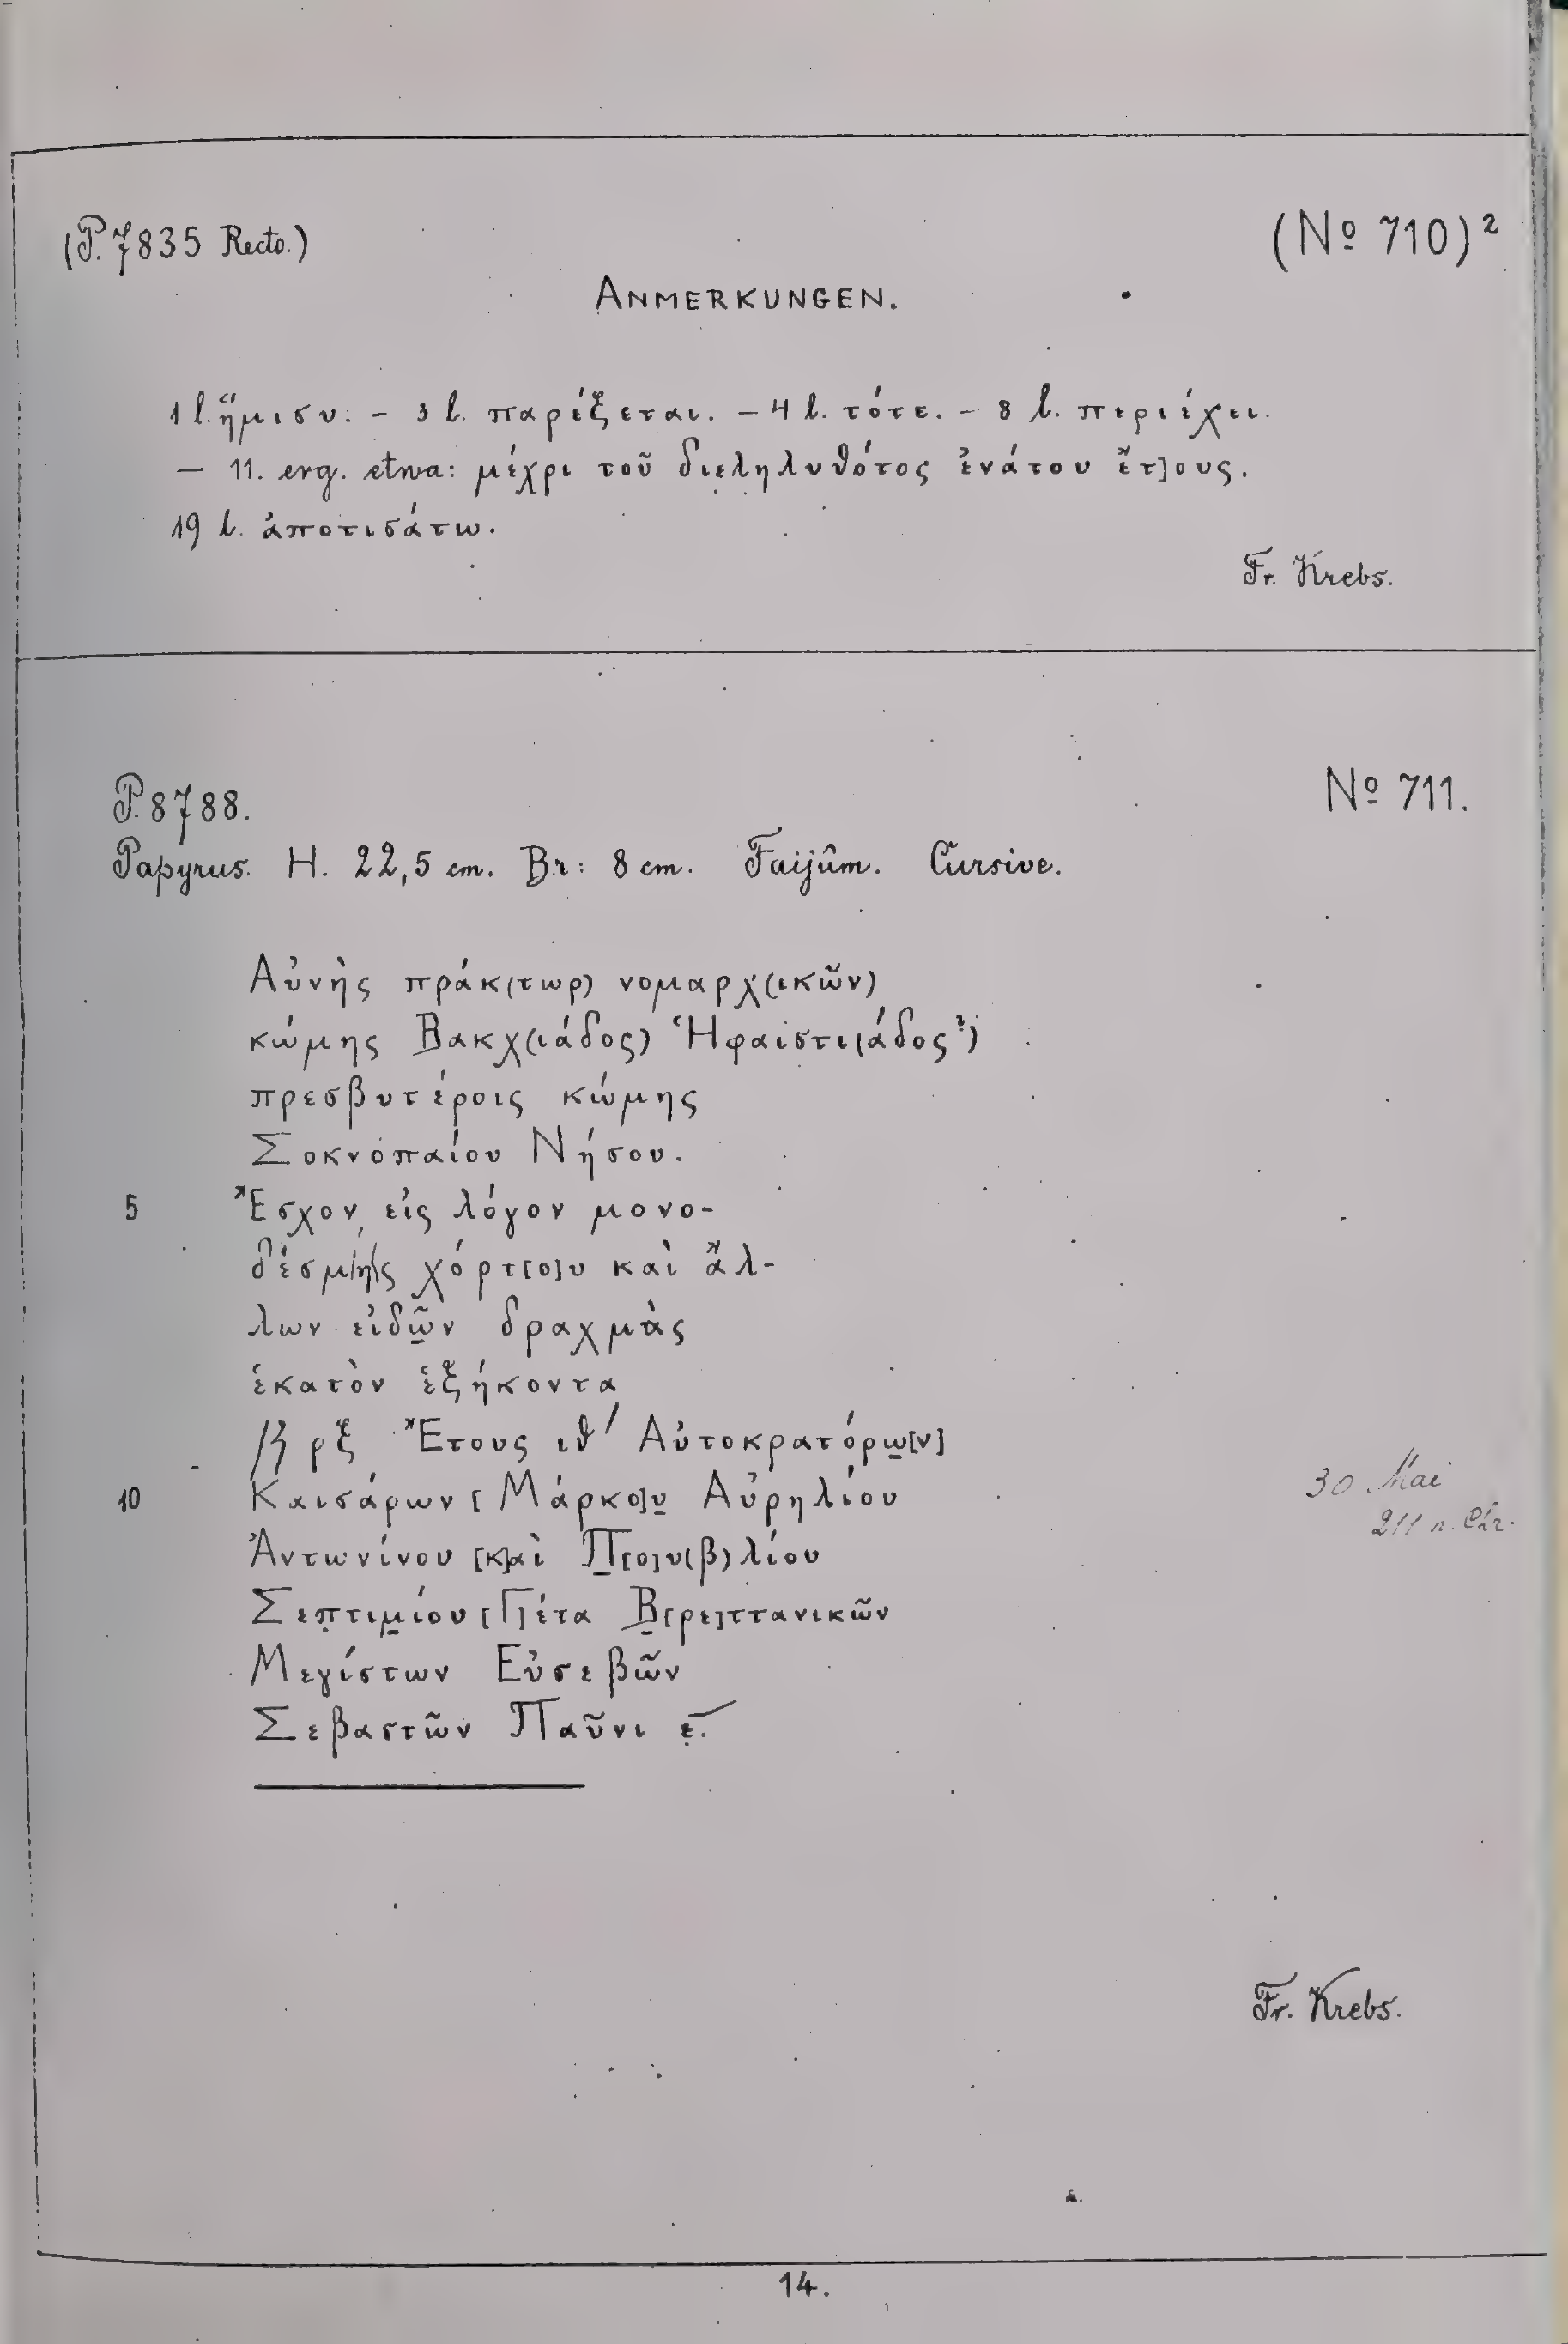 (P. 7835 Recto.)
(No 710)²
ANMERKUNGEN.
1 l. ἥμισυ. – 3 l. παρέξεται. – 4 l. τότε. – 8 l. περιέχει.
– 11. erg. etwa: μέχρι τοῦ διεληλυθότος ἐνάτου ἔτ]ους.
19 l. ἀποτισάτω.
Fr. Krebs.
P. 8788.
No 711.
Papyrus. H. 22,5 cm. Br: 8 cm. Faijûm. Cursive.
Αὐνὴς πράκ(τωρ) νομαρχ(ικῶν)
κώμης Βακχ(ιάδος) Ἡφαιστι(άδος?)
πρεσβυτέροις κώμης
Σοκνοπαίου Νήσου.
5 Ἔσχον εἰς λόγον μονο-
δέσμης χόρτ[ο]υ καὶ ἄλ-
λων εἰδῶν δραχμὰς
ἑκατὸν ἑξήκοντα
ρξ Ἔτους ιθ´ Αὐτοκρατόρω[ν]
10 Καισάρων [Μάρκο]υ Αὐρηλίου
Ἀντωνίνου [κ]αὶ Π[ο]υ(β)λίου
Σεπτιμίου [Γ]έτα Β[ρε]ττανικῶν
Μεγίστων Εὐσεβῶν
Σεβαστῶν Παῦνι ε.
30 Mai
211 n. Chr.
Fr. Krebs.
14.